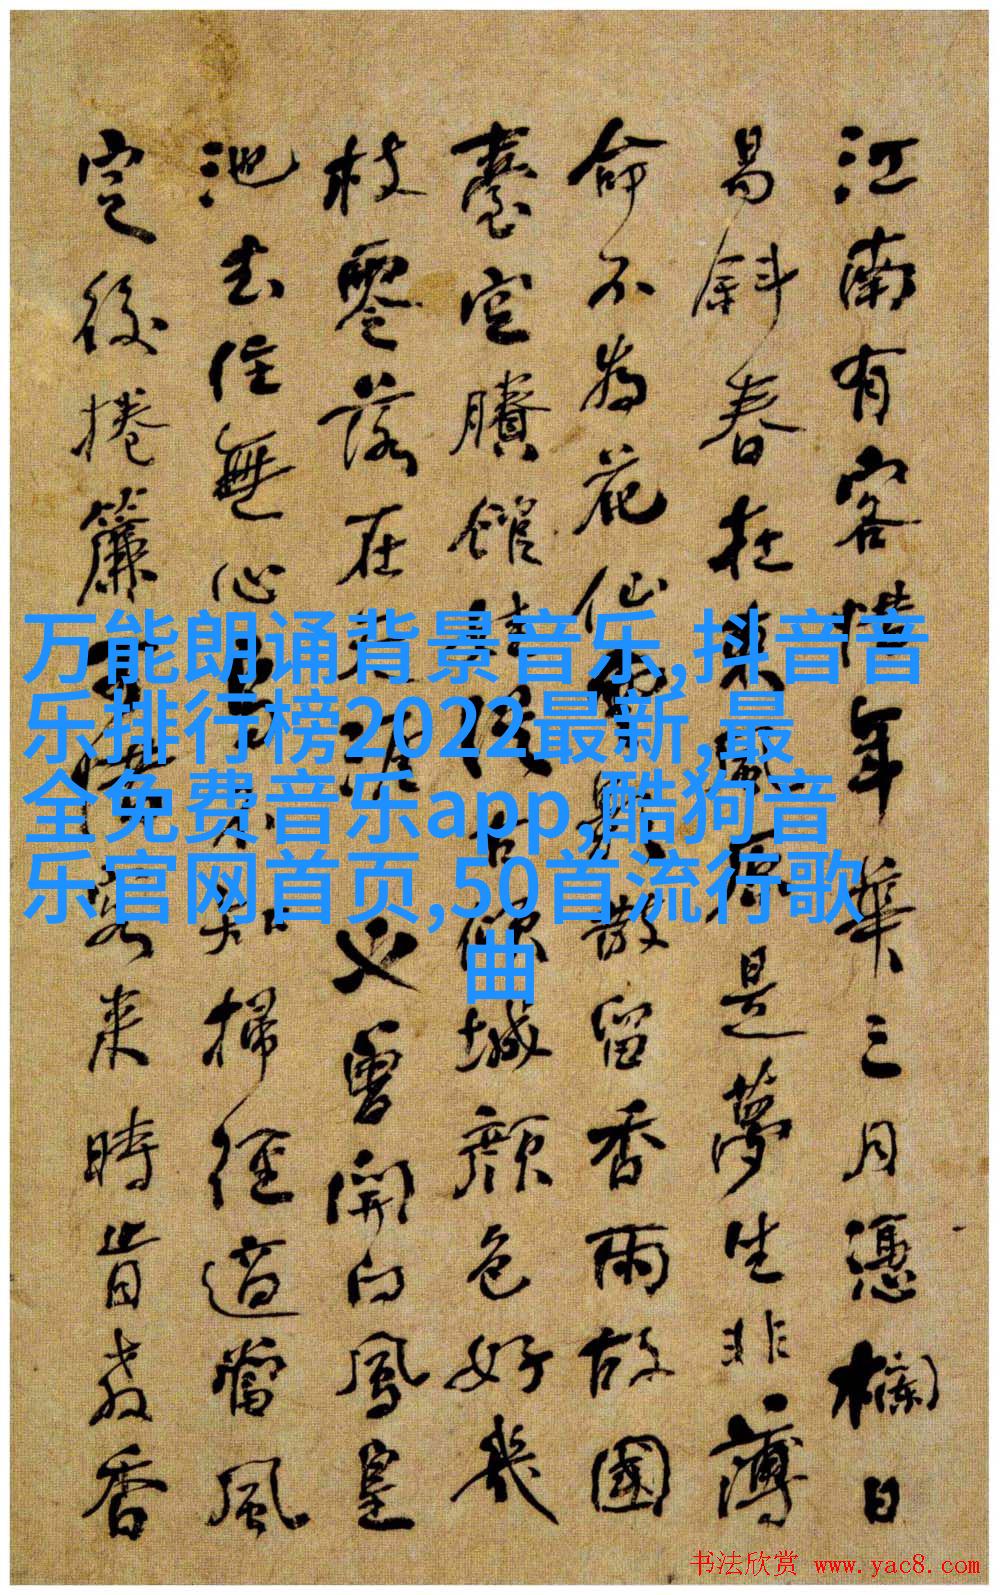 江南有客惜年華三月憑欄日
易斜春在東風原是夢生非薄
命不為花仙雲影散留香雨故國
臺空賸館娃從古傾城顏色好幾
枝零落在天涯又曾開向鳳皇
池去住無心知掃徑適當風
定後捲簾客來時肯教香
万能朗诵背景音乐,抖音音
乐排行榜2022最新,最
全免费音乐app,酷狗音
乐官网首页,50首流行歌
曲
书法欣赏 www.yac8.com